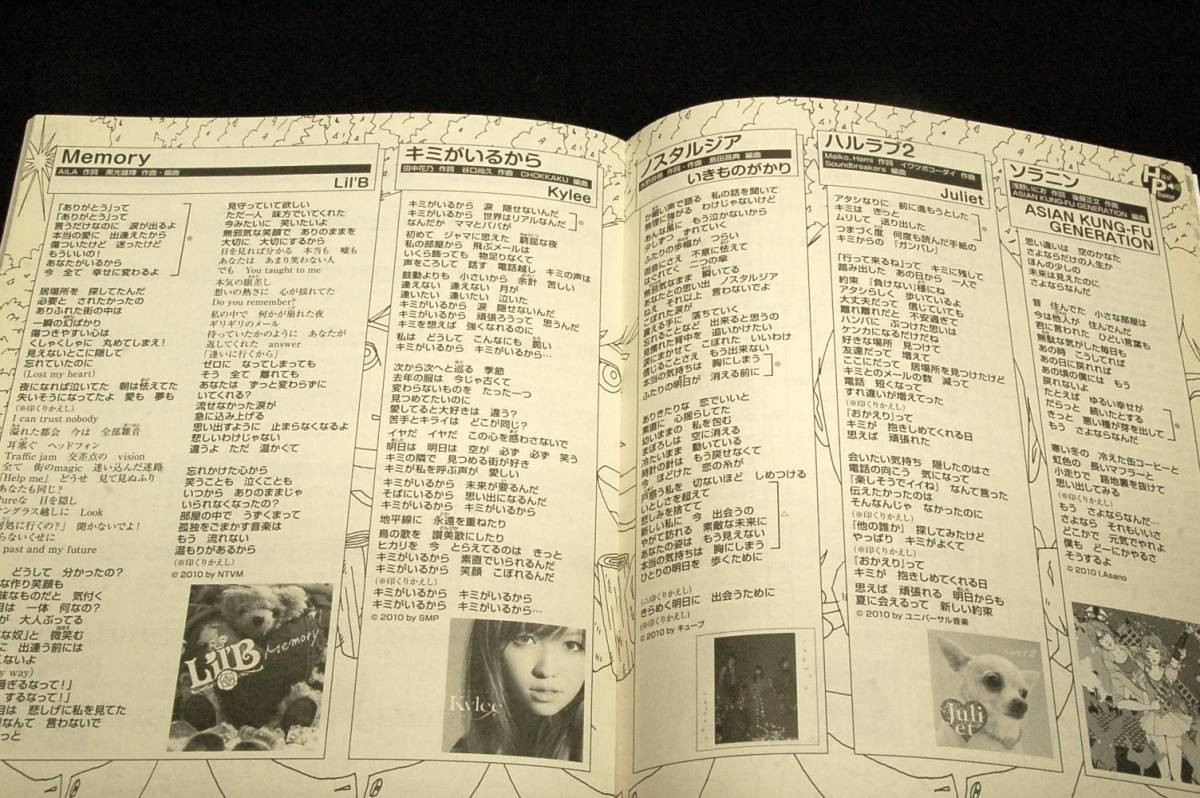 Memory
AILA 作詞 黒光雄輝 作曲・編曲
Lil'B
「ありがとう」って
「ありがとう」って
言うだけなのに 涙が出るよ
本当の愛に 出逢えたから
傷ついたけど 迷ったけど
もういいの!
あなたがいるから
今 全て 幸せに変わるよ
居場所を 探してたんだ
必要と されたかったの
ありふれた街の中は
一瞬の幻ばかり
傷つきやすい心は
くしゃくしゃに 丸めてしまえ!
見えないとこに隠して
忘れていたのに
(Lost my heart)
夜になれば泣いてた 朝は怯えてた
失いそうになってたよ 愛も 夢も
(※印くりかえし)
I can trust nobody
溢れた都会 今は 全部雑音
耳塞ぐ ヘッドフォン
Traffic jam 交差点の vision
全て 街のmagic 迷い込んだ迷路
「Help me」 どうせ 見て見ぬふり
あなたも同じ?
Pureな 目を隠し
ングラス越しに Look
何処に行くの?」 聞かないでよ!
らないくせに
past and my future
(※印くりかえし)
どうして 分かったの?
な作り笑顔も
味なものだと 気付く
目は 一体 何なの?
が 大人ぶってる
な奴」と 微笑む
に 出逢う前には
ないよ
y way)
過ぎるなって!」
するなって!」
目は 悲しげに私を見てた
なんて 言わないで
っと
見守っていて欲しい
ただ一人 味方でいてくれた
今みたいに 笑いたいよ
無邪気な笑顔で ありのままを
大切に 大切にするから
目を見れば分かる 本当も 嘘も
あなたは あまり笑わない人
でも You taught to me
本気の眼差し
想いの熱さに 心が揺れてた
Do you remember?
私の中で 何かが崩れた夜
ギリギリのメール
待っていたかのように あなたが
返してくれた answer
「逢いに行くから」
ゼロに なってしまっても
そう 全て 離れても
あなたは ずっと変わらずに
いてくれる?
流せなかった涙が
急に込み上げる
思い出すように 止まらなくなるよ
悲しいわけじゃない
違うよ ただ 温かくて
忘れかけた心から
笑うことも 泣くことも
いつから ありのままじゃ
いられなくなったの?
部屋の中で うずくまって
孤独をごまかす音楽は
もう 流れない
温もりがあるから
(※印くりかえし)
© 2010 by NTVM
Lil'B
Memory
キミがいるから
田中花乃 作詞 谷口尚久 作曲 CHOKKAKU 編曲
Kylee
キミがいるから 涙 隠せないんだ
キミがいるから 世界はリアルなんだ
なんだか ママとパパが
初めて ジャマに思えた 窮屈な夜
私の部屋から 飛ぶメールは
いくら飾っても 物足りなくて
声をころして 話す 電話越し キミの声は
鼓動よりも 小さいから 余計 苦しい
逢えない 逢えない 月が
逢いたい 逢いたい 泣いた
キミがいるから 涙 隠せないんだ
キミがいるから 頑張ろうって 思うんだ
キミを想えば 強くなれるのに
私は どうして こんなにも 脆い
キミがいるから キミがいるから…
次から次へと巡る 季節
去年の服は 今じゃ古くて
変わらないものを たった一つ
見つめてたいのに
愛してると大好きは 違う?
苦手とキライは どこが同じ?
イヤだ イヤだ この心を惑わさないで
明日は 明日は 空が 必ず 必ず 笑う
キミの隣で 見つめる街が好き
キミが私を呼ぶ声が 愛しい
キミがいるから 未来が要るんだ
そばにいるから 思い出になるんだ
キミがいるから キミがいるから
地平線に 永遠を重ねたり
鳥の歌を 讃美歌にしたり
ヒカリを 今 とらえてるのは きっと
キミがいるから 素直でいられるんだ
キミがいるから 笑顔 こぼれるんだ
(※印くりかえし)
キミがいるから キミがいるから
キミがいるから キミがいるから…
© 2010 by SMP
Kylee
ノスタルジア
水野良樹 作詞・作曲 島田昌典 編曲
いきものがかり
私の話を聞いて
か細い声で語る
無理に強がる わけじゃないけど
そんな風に もう泣かないから
少しずつ ずれていく
ふたりの歩幅が つらい
雨音にさえ 不意に怯えて
はぐれてく 二つの傘
無邪気なまま 瞬いてる
あなたとの思い出 ノスタルジア
ねえ それ以上 言わないでよ
こぼれた涙が
震える手に 落ちていく
忘れることなど 出来ると思うの
見慣れた背中を 追いかけたい
涙にまかせて こぼれた いいわけ
信じることさえ もう出来ない
本当の気持ちは 胸にしまう
ふたりの明日が 消える前に
ありきたりな 恋でいいと
素直に 心揺らしてた
幼いままの 私を包む
まぼろしは 空に消える
冷たいまま 動いている
時計の針は もう戻せなくて
今 ほどけた 恋の糸が
戸惑う私を 切ないほど しめつける
いとしさを超えて
悲しみを捨てて
新しい私に 今 出会うの
やがて訪れる 素敵な未来に
あなたの姿は もう見えない
本当の気持ちは 胸にしまう
ひとりの明日を 歩くために
(※印くりかえし)
(△印くりかえし)
きらめく明日に 出会うために
(※印くりかえし)
© 2010 by キューブ
ハルラブ2
Maiko, Hami 作詞 イワツボコーダイ 作曲
Soundbreakers 編曲
Juliet
アタシなりに 前に進もうとした
キミは きっと
ムリして 送り出した
つまづく度 何度も読んだ手紙の
キミからの 「ガンバレ」
「行って来るね」って キミに残して
踏み出した あの日から 一人で
約束 「負けない」様にね
アタシらしく 歩いているよ
大丈夫だって 信じていても
離れ離れだと 不安過ぎて
ハンパに ぶつけた思いは
ケンカになるだけだね
好きな場所 見つけて
友達だって 増えて
ここにだって 居場所を見つけたけど
キミとのメールの数 減って
電話 短くなって
すれ違いが増えてった
(※印くりかえし)
「おかえり」って
キミが 抱きしめてくれる日
思えば 頑張れた
会いたい気持ち 隠したのはさ
電話の向こう 気になって
「楽しそうでイイね」 なんて言った
伝えたかったのは
そんなんじゃ なかったのに
(※印くりかえし)
「他の誰か」 探してみたけど
やっぱり キミがよくて
(※印くりかえし)
「おかえり」って
キミが 抱きしめてくれる日
思えば 頑張れる 明日からも
夏に会えるって 新しい約束
© 2010 by ユニバーサル音楽
ハルラブ2
Juliet
ソラニン
浅野いにお 作詞 後藤正文 作曲
ASIAN KUNG-FU GENERATION 編曲
ASIAN KUNG-FU
GENERATION
思い違いは 空のかなた
さよならだけの人生か
ほんの少しの
未来は見えたのに
さよならなんだ
昔 住んでた 小さな部屋は
今は他人が 住んでんだ
君に言われた ひどい言葉も
無駄な気がした毎日も
あの時 こうしてれば
あの日に戻れれば
あの頃の僕には もう
戻れないよ
たとえば ゆるい幸せが
だらっと 続いたとする
きっと 悪い種が芽を出して
もう さよならなんだ
寒い冬の 冷えた缶コーヒーと
虹色の 長いマフラーと
小走りで 路地裏を抜けて
思い出してみる
(※印くりかえし)
もう さよならなんだ…
さよなら それもいいさ
どこかで 元気でやれよ
僕も どーにかやるさ
そうするよ
© 2010 I.Asano